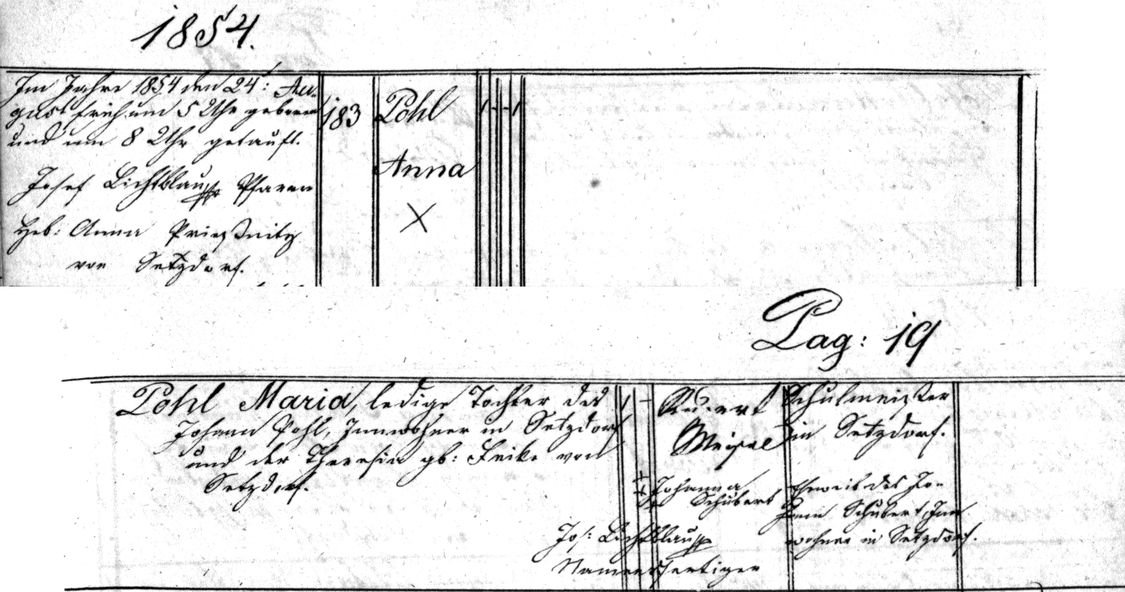 1854.
Im Jahre 1854 den 24t: Au-
gust früh um 5 Uhr geboren
und um 8 Uhr getauft.
Josef Lichtblau Pfarrer
Heb: Anna Prießnitz
von Setzdorf.
183
Pohl
Anna
X
1 - - 1
Pag: 19
Pohl Maria, ledige Tochter des
Johann Pohl, Innwohner in Setzdorf
und der Theresia gb: von
Setzdorf.
1 -
Schulmeister
in Setzdorf.
+++ Johanna
Schubert
Eheweib des Jo-
hann Schubert, Inn-
wohner in Setzdorf.
Jos: Lichtblau
Namensfertiger